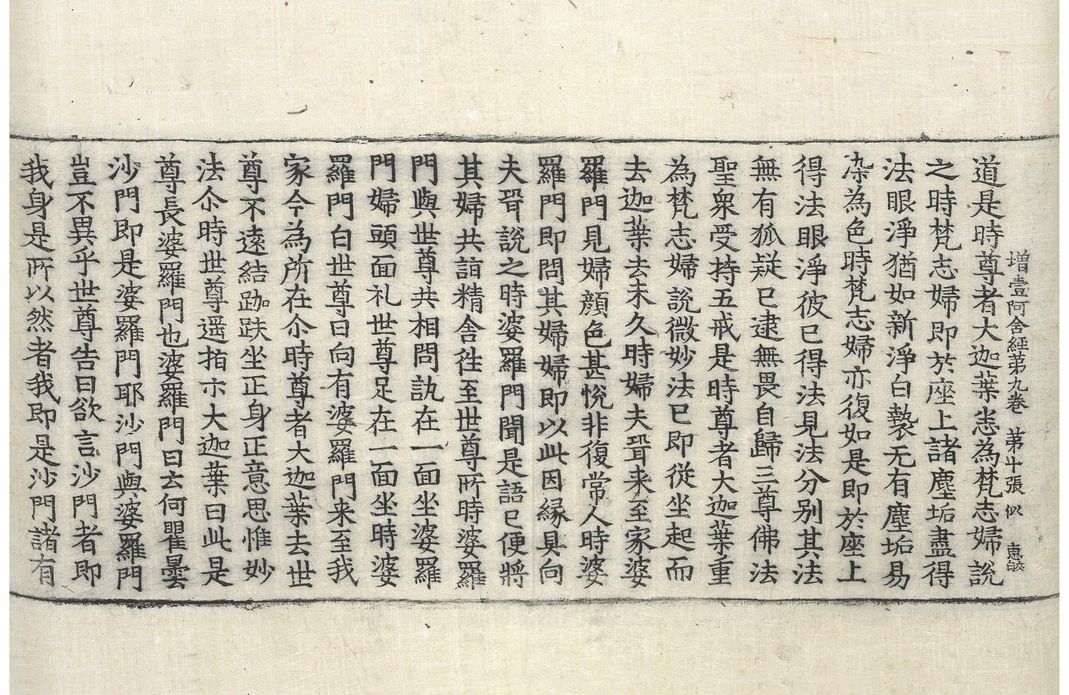 增壹阿含經第九卷 第十張 似 惠
道是時尊者大迦葉悉為梵志婦說
之時梵志婦即於座上諸塵垢盡得
法眼淨猶如新淨白褺无有塵垢易
染為色時梵志婦亦復如是即於座上
得法眼淨彼已得法見法分别其法
無有狐疑已逮無畏自歸三尊佛法
聖衆受持五戒是時尊者大迦葉重
為梵志婦說微妙法已即從坐起而
去迦葉去未久時婦夫聟来至家婆
羅門見婦顔色甚悅非復常人時婆
羅門即問其婦婦即以此因緣具向
夫聟說之時婆羅門聞是語已便將
其婦共詣精舍往至世尊所時婆羅
門與世尊共相問訊在一面坐婆羅
門婦頭面礼世尊足在一面坐時婆
羅門白世尊曰向有婆羅門来至我
家今為所在尒時尊者大迦葉去世
尊不遠結跏趺坐正身正意思惟妙
法尒時世尊遥指示大迦葉曰此是
尊長婆羅門也婆羅門曰云何瞿曇
沙門即是婆羅門耶沙門與婆羅門
豈不異乎世尊告曰欲言沙門者即
我身是所以然者我即是沙門諸有